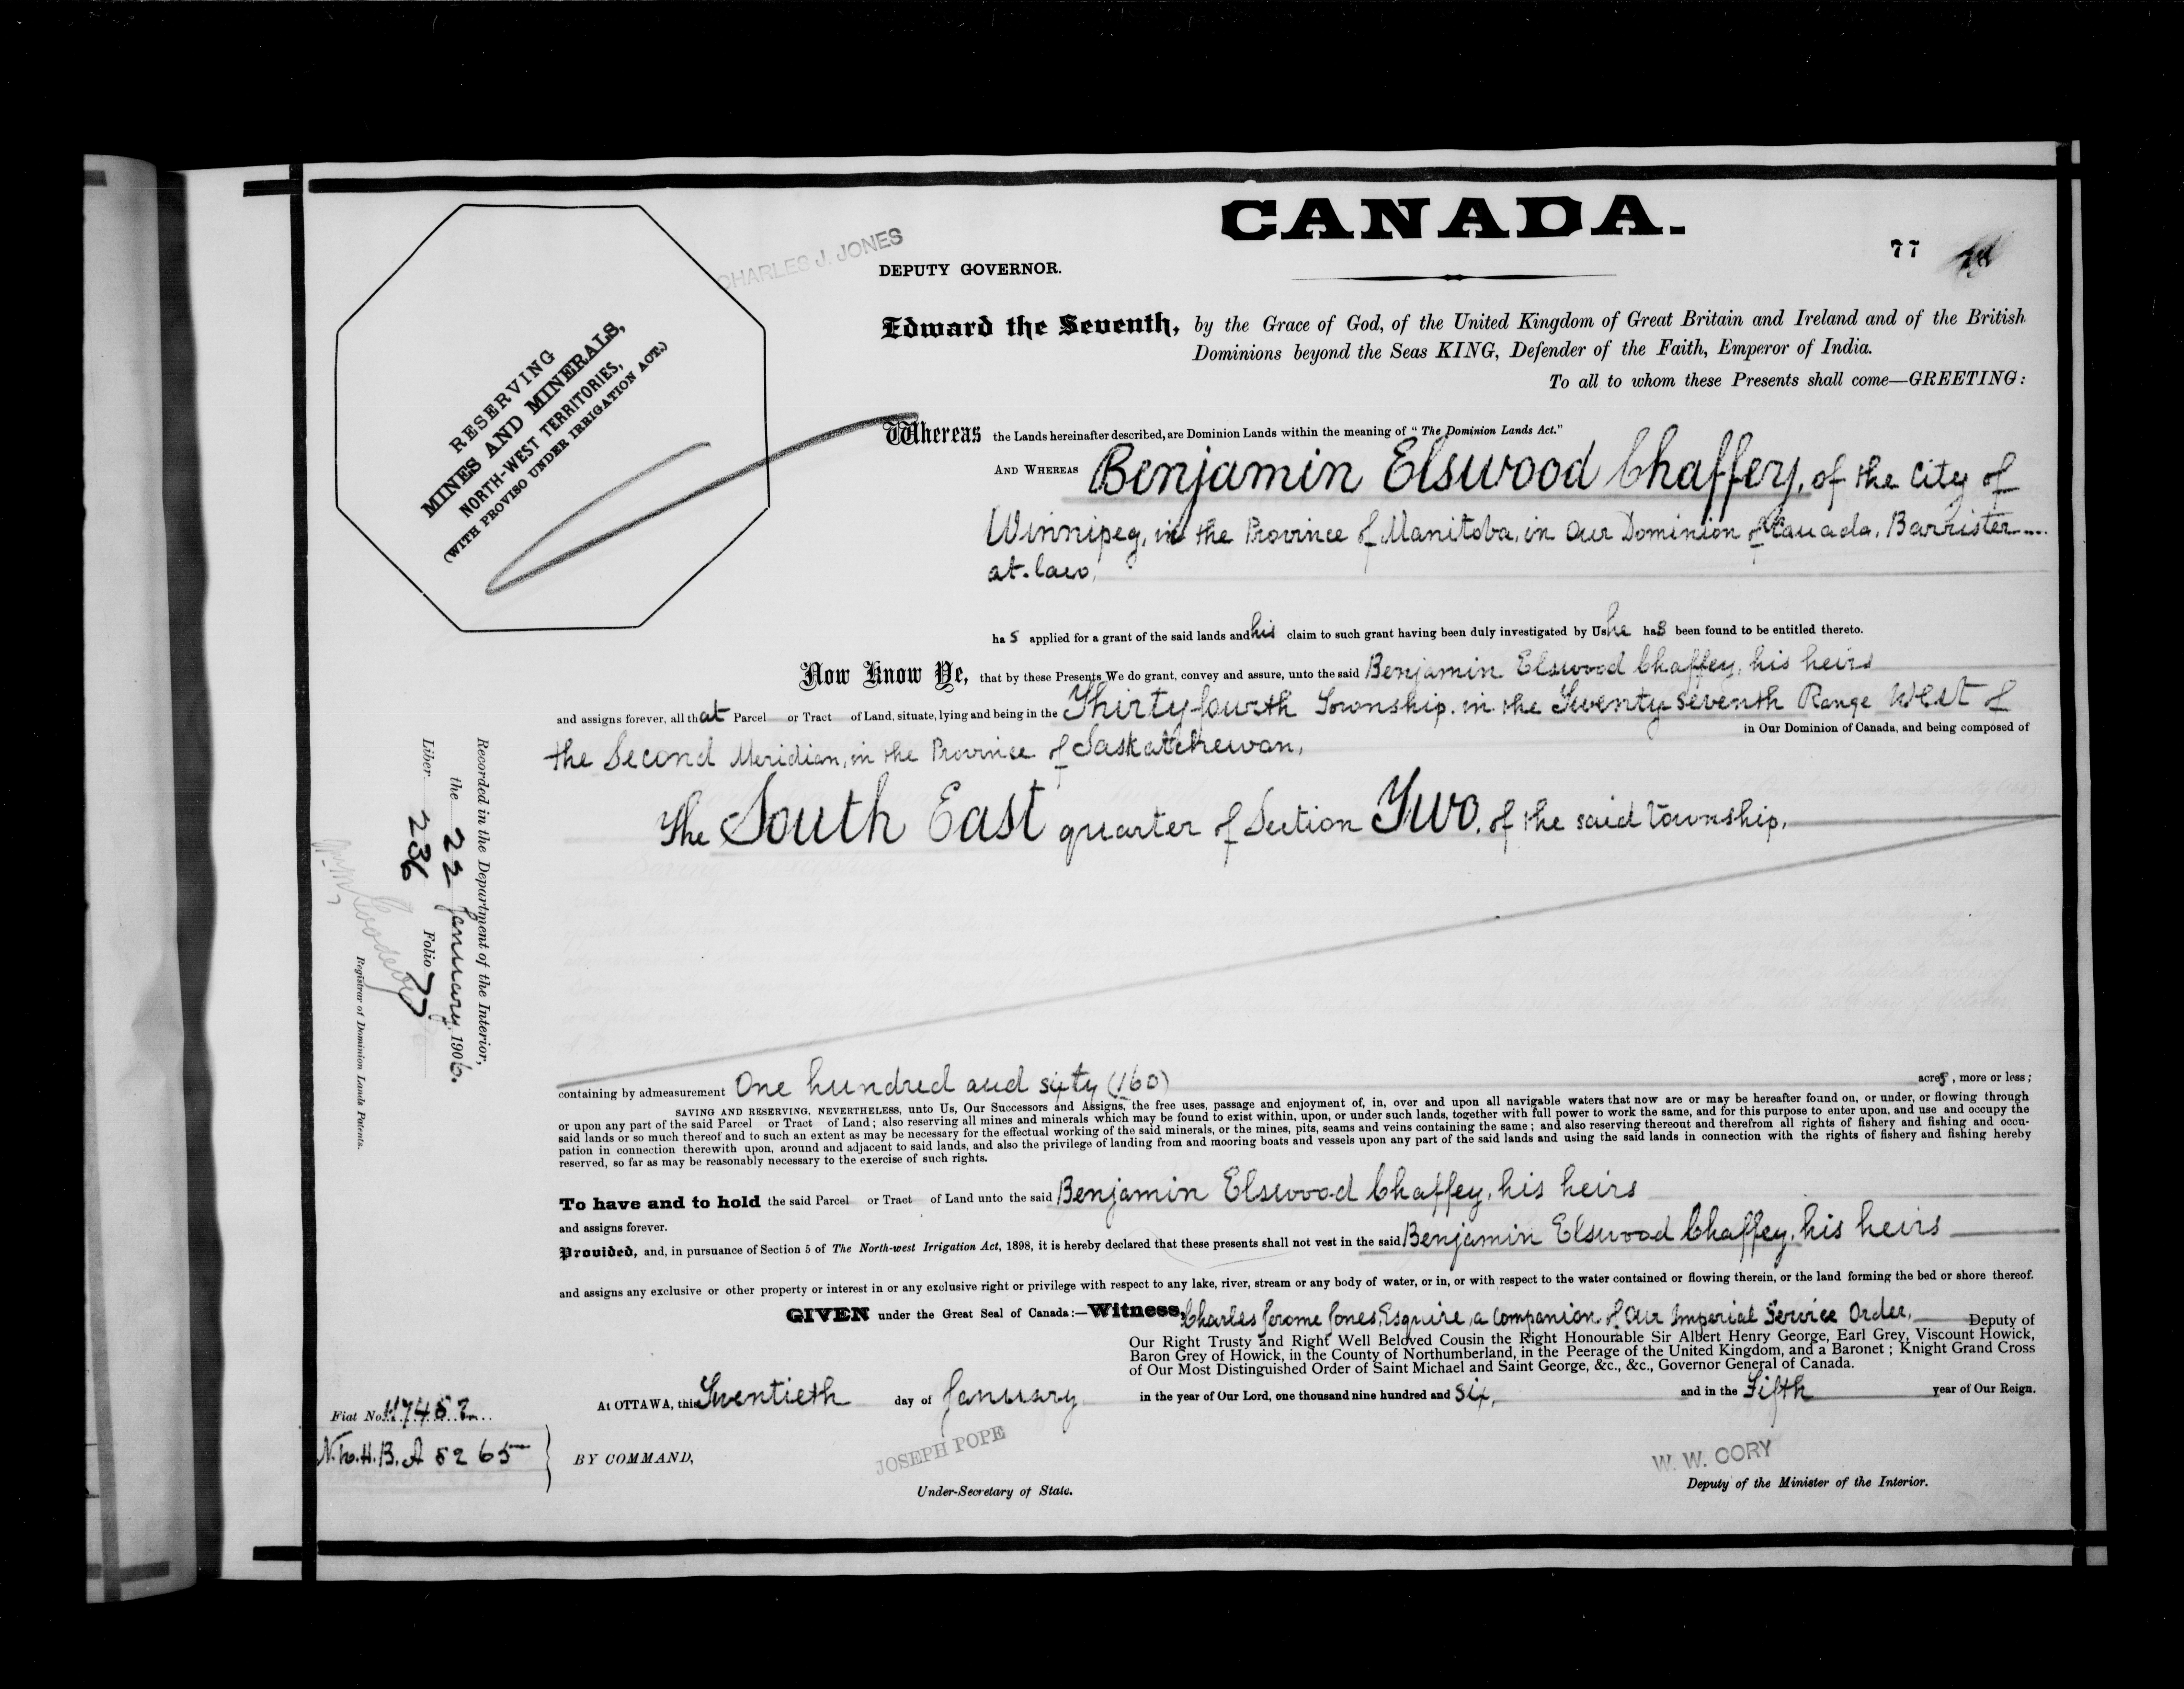 CANADA.
77
CHARLES J. JONES
DEPUTY GOVERNOR.
RESERVING
MINES AND MINERALS,
NORTH-WEST TERRITORIES,
(WITH PROVISO UNDER IRRIGATION ACT.)
Edward the Seventh, by the Grace of God, of the United Kingdom of Great Britain and Ireland and of the British
Dominions beyond the Seas KING, Defender of the Faith, Emperor of India.
To all to whom these Presents shall come—GREETING:
Whereas the Lands hereinafter described, are Dominion Lands within the meaning of "The Dominion Lands Act."
AND WHEREAS Benjamin Elswood Chaffey, of the City of
Winnipeg, in the Province of Manitoba, in Our Dominion of Canada, Barrister
at-law,
has applied for a grant of the said lands and his claim to such grant having been duly investigated by Us he has been found to be entitled thereto.
Now Know Ye, that by these Presents We do grant, convey and assure, unto the said Benjamin Elswood Chaffey, his heirs
and assigns forever, all that Parcel or Tract of Land, situate, lying and being in the Thirty fourth Township, in the Twenty seventh Range West of
the Second Meridian, in the Province of Saskatchewan, in Our Dominion of Canada, and being composed of
The South East quarter of Section Two, of the said township,
containing by admeasurement One hundred and sixty (160) acres, more or less;
SAVING AND RESERVING, NEVERTHELESS, unto Us, Our Successors and Assigns, the free uses, passage and enjoyment of, in, over and upon all navigable waters that now are or may be hereafter found on, or under, or flowing through
or upon any part of the said Parcel or Tract of Land; also reserving all mines and minerals which may be found to exist within, upon, or under such lands, together with full power to work the same, and for this purpose to enter upon, and use and occupy the
said lands or so much thereof and to such an extent as may be necessary for the effectual working of the said minerals, or the mines, pits, seams and veins containing the same; and also reserving thereout and therefrom all rights of fishery and fishing and occu-
pation in connection therewith upon, around and adjacent to said lands, and also the privilege of landing from and mooring boats and vessels upon any part of the said lands and using the said lands in connection with the rights of fishery and fishing hereby
reserved, so far as may be reasonably necessary to the exercise of such rights.
To have and to hold the said Parcel or Tract of Land unto the said Benjamin Elswood Chaffey, his heirs
and assigns forever.
Provided, and, in pursuance of Section 5 of The North-west Irrigation Act, 1898, it is hereby declared that these presents shall not vest in the said Benjamin Elswood Chaffey, his heirs
and assigns any exclusive or other property or interest in or any exclusive right or privilege with respect to any lake, river, stream or any body of water, or in, or with respect to the water contained or flowing therein, or the land forming the bed or shore thereof.
GIVEN under the Great Seal of Canada:—Witness, Charles Jerome Jones, Esquire, a Companion of Our Imperial Service Order, Deputy of
Our Right Trusty and Right Well Beloved Cousin the Right Honourable Sir Albert Henry George, Earl Grey, Viscount Howick,
Baron Grey of Howick, in the County of Northumberland, in the Peerage of the United Kingdom, and a Baronet; Knight Grand Cross
of Our Most Distinguished Order of Saint Michael and Saint George, &c., &c., Governor General of Canada.
At OTTAWA, this Twentieth day of January in the year of Our Lord, one thousand nine hundred and six, and in the Fifth year of Our Reign.
BY COMMAND,
JOSEPH POPE
Under-Secretary of State.
W. W. CORY
Deputy of the Minister of the Interior.
Recorded in the Department of the Interior,
the 22 January, 1906.
Liber 236 Folio 77
Registrar of Dominion Lands Patents.
Fiat No.
N.W.H.B. A 5265